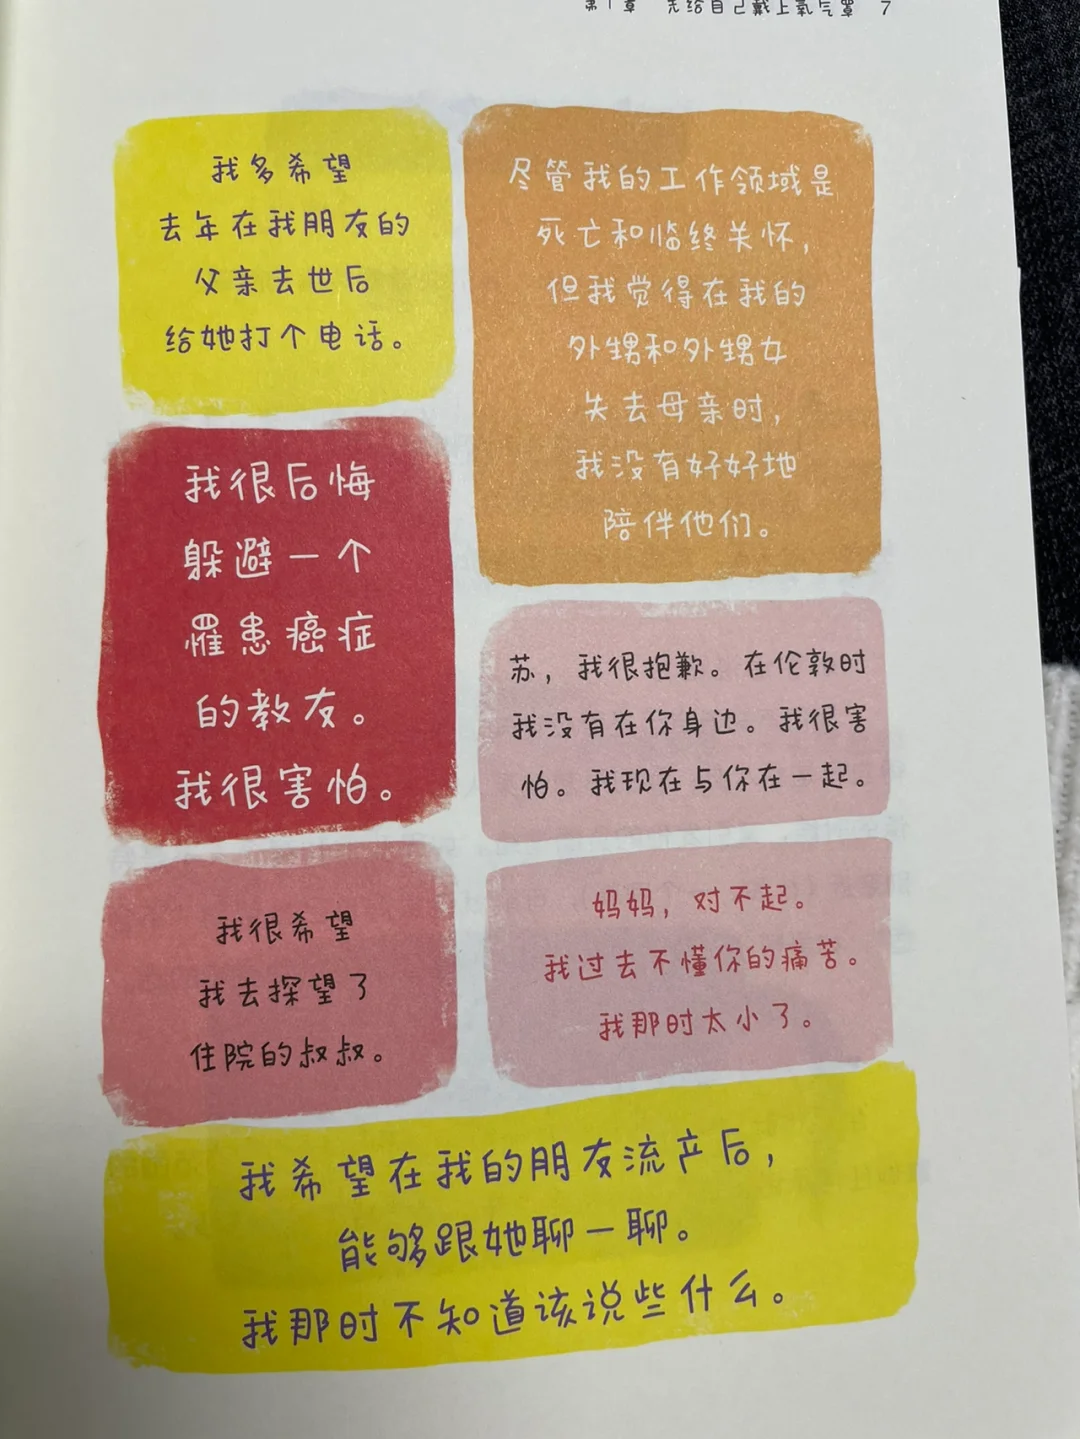 第1章 先给自己戴上氧气罩 7
我多希望
去年在我朋友的
父亲去世后
给她打个电话。
尽管我的工作领域是
死亡和临终关怀,
但我觉得在我的
外甥和外甥女
失去母亲时,
我没有好好地
陪伴他们。
我很后悔
躲避一个
罹患癌症
的教友。
我很害怕。
苏，我很抱歉。在伦敦时
我没有在你身边。我很害
怕。我现在与你在一起。
我很希望
我去探望了
住院的叔叔。
妈妈，对不起。
我过去不懂你的痛苦。
我那时太小了。
我希望在我的朋友流产后,
能够跟她聊一聊。
我那时不知道该说些什么。